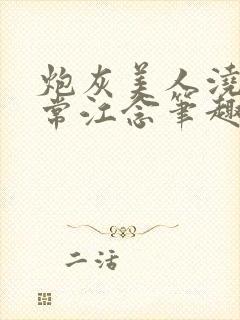 炮灰美人浇
常江念笔趣
二活